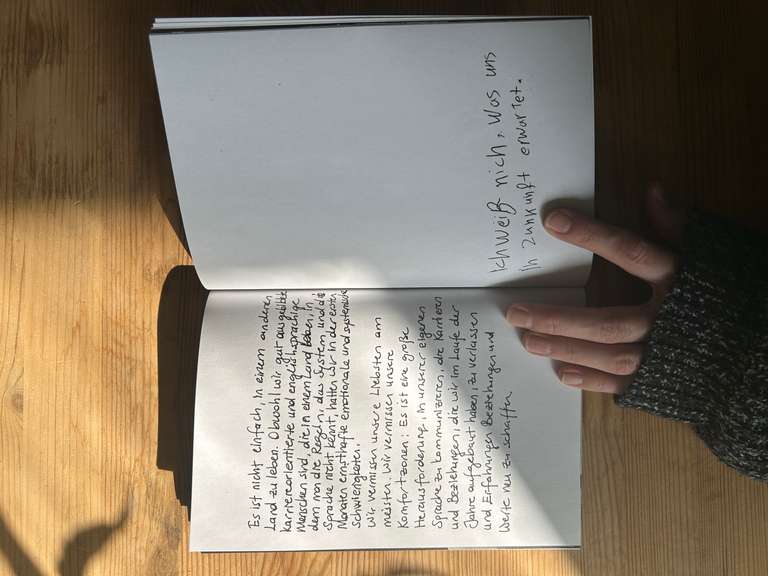 Es ist nicht einfach, in einem anderen
Land zu leben. Obwohl wir gut ausgebildete
karriereorientierte und englischsprachige
Menschen sind, die in einem Land leben, in
dem man die Regeln, das System und die
Sprache nicht kennt, hatten wir in der ersten
Monaten ernsthafte emotionale und systemische
Schwierigkeiten.
Wir vermissen unsere Liebsten am
meisten. Wir vermissen unsere
Komfortzonen: Es ist eine große
Herausforderung, in unserer eigenen
Sprache zu kommunizieren, die Karrieren
und Beziehungen, die wir im Laufe der
Jahre aufgebaut haben, zu verlassen
und Erfahrungen Beziehungen und
Werte neu zu schaffen.
Ich weiß nich, was uns
in zunkunft erwartet.